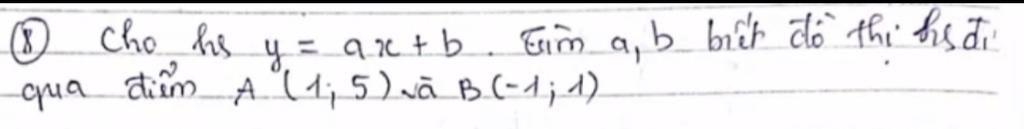 ⑧ Cho hs y = ax + b. Tìm a, b biết đồ thị hs đi
qua điểm A (1; 5) và B (-1; 1)